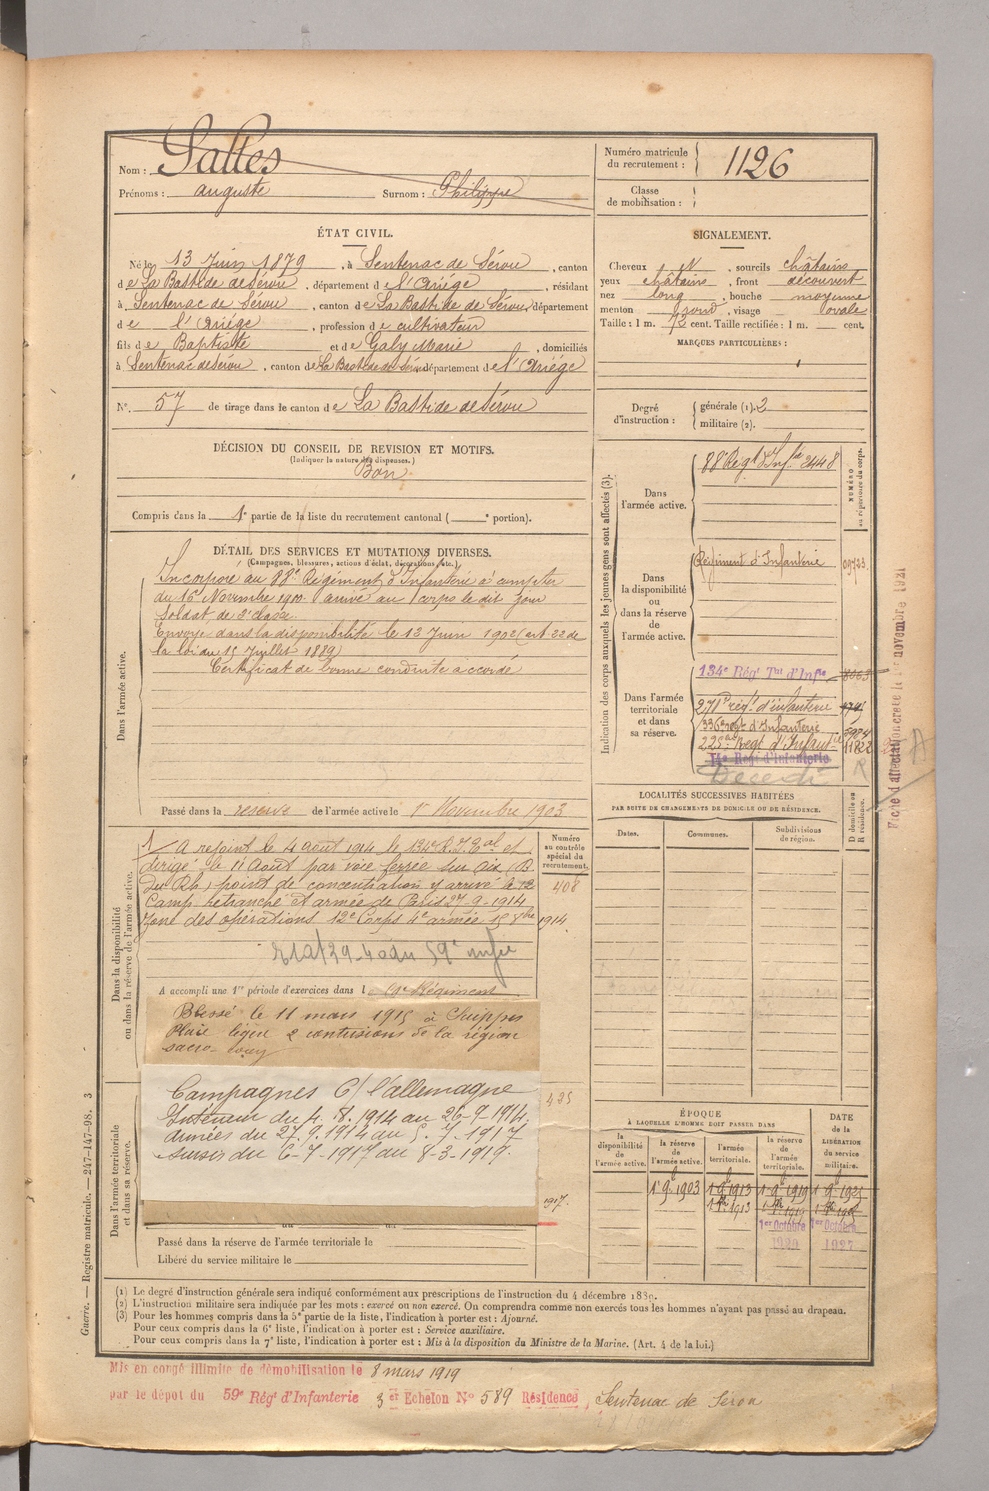 Nom : Salles
Prénoms : auguste Surnom : Philippe
Numéro matricule du recrutement : 1126
Classe de mobilisation :
ÉTAT CIVIL.
Né le 13 Juin 1879, à Sentenac de Sérou, canton
de La Bastide de Sérou, département de l'Ariége, résidant
à Sentenac de Sérou, canton de La Bastide de Sérou, département
de l'Ariége, profession de cultivateur
fils de Baptiste et de Galy Marie, domiciliés
à Sentenac de Sérou, canton de La Bastide de Sérou, département de l'Ariége
N° 57 de tirage dans le canton de La Bastide de Sérou
SIGNALEMENT.
Cheveux N, sourcils châtains
yeux châtains, front découvert
nez long, bouche moyenne
menton rond, visage ovale
Taille : 1 m. 72 cent. Taille rectifiée : 1 m. cent.
MARQUES PARTICULIÈRES :
Degré d'instruction : générale (1). 2
militaire (2).
DÉCISION DU CONSEIL DE REVISION ET MOTIFS.
(Indiquer la nature des dispenses.)
Bon
Compris dans la 1e partie de la liste du recrutement cantonal ( e portion).
DÉTAIL DES SERVICES ET MUTATIONS DIVERSES.
(Campagnes, blessures, actions d'éclat, décorations, etc.)
Dans l'armée active.
Incorporé au 88e Régiment d'Infanterie à compter
du 16 Novembre 1900 arrivé au corps le dit jour
Soldat de 2e classe.
Envoyé dans la disponibilité le 13 Juin 1902 (art 22 de
la loi du 15 Juillet 1889)
Certificat de bonne conduite accordé
Passé dans la reserve de l'armée active le 1er Novembre 1903
Indication des corps auxquels les jeunes gens sont affectés (3).
NUMÉRO au répertoire du corps.
Dans l'armée active.
88e Régt Infie 2448
Dans la disponibilité ou dans la réserve de l'armée active.
Régiment d'Infanterie 09723
Dans l'armée territoriale et dans sa réserve.
134e Régt Tal d'Infie
271e régt d'infanterie
336e regt d'Infanterie
225e Regt d'Infant-ie 11822
14e Régt d'Infanterie
Decedé
R
A
Fiche d'affectation créée le 1er novembre 1921
LOCALITÉS SUCCESSIVES HABITÉES
PAR SUITE DE CHANGEMENTS DE DOMICILE OU DE RÉSIDENCE.
Dates. Communes. Subdivisions de région. D domicile ou R résidence.
Dans la disponibilité ou dans la réserve de l'armée active.
Numéro au contrôle spécial du recrutement.
408
A rejoint le 4 août 1914 le 134e R.I.Tal et
dirigé le 11 Août par voie ferrée sur Aix (B.
du Rh.) point de concentration y arrivé le 12
Camp retranché et armée de Paris 27-9-1914
Zone des opérations 12e Corps 4e armée 15 8bre 1914.
A accompli une 1re période d'exercices dans l
Blessé le 11 mars 1915 à Suippes
Plaie légère 2 contusions de la région
sacro-
Campagnes C/ l'allemagne
Intérieur du 4.8.1914 au 26-9-1914.
Armées du 27.9.1914 au 5.7.1917
Sursis du 6-7-1917 au 8-3-1919.
425
1917.
Dans l'armée territoriale et dans sa réserve.
Passé dans la réserve de l'armée territoriale le
Libéré du service militaire le
ÉPOQUE
À LAQUELLE L'HOMME DOIT PASSER DANS
la disponibilité de l'armée active. la réserve de l'armée active. l'armée territoriale. la réserve de l'armée territoriale.
DATE de la LIBÉRATION du service militaire.
1er Octobre 1920 1er Octobre 1927
(1) Le degré d'instruction générale sera indiqué conformément aux prescriptions de l'instruction du 4 décembre 1889.
(2) L'instruction militaire sera indiquée par les mots : exercé ou non exercé. On comprendra comme non exercés tous les hommes n'ayant pas passé au drapeau.
(3) Pour les hommes compris dans la 5e partie de la liste, l'indication à porter est : Ajourné.
Pour ceux compris dans la 6e liste, l'indication à porter est : Service auxiliaire.
Pour ceux compris dans la 7e liste, l'indication à porter est : Mis à la disposition du Ministre de la Marine. (Art. 4 de la loi.)
Mis en congé illimité de démobilisation le 8 mars 1919
par le dépôt du 59e Régt d'Infanterie 3e Echelon N° 589 Résidence, Sentenac de Sérou
Guerre. — Registre matricule. — 247-147-98. 3